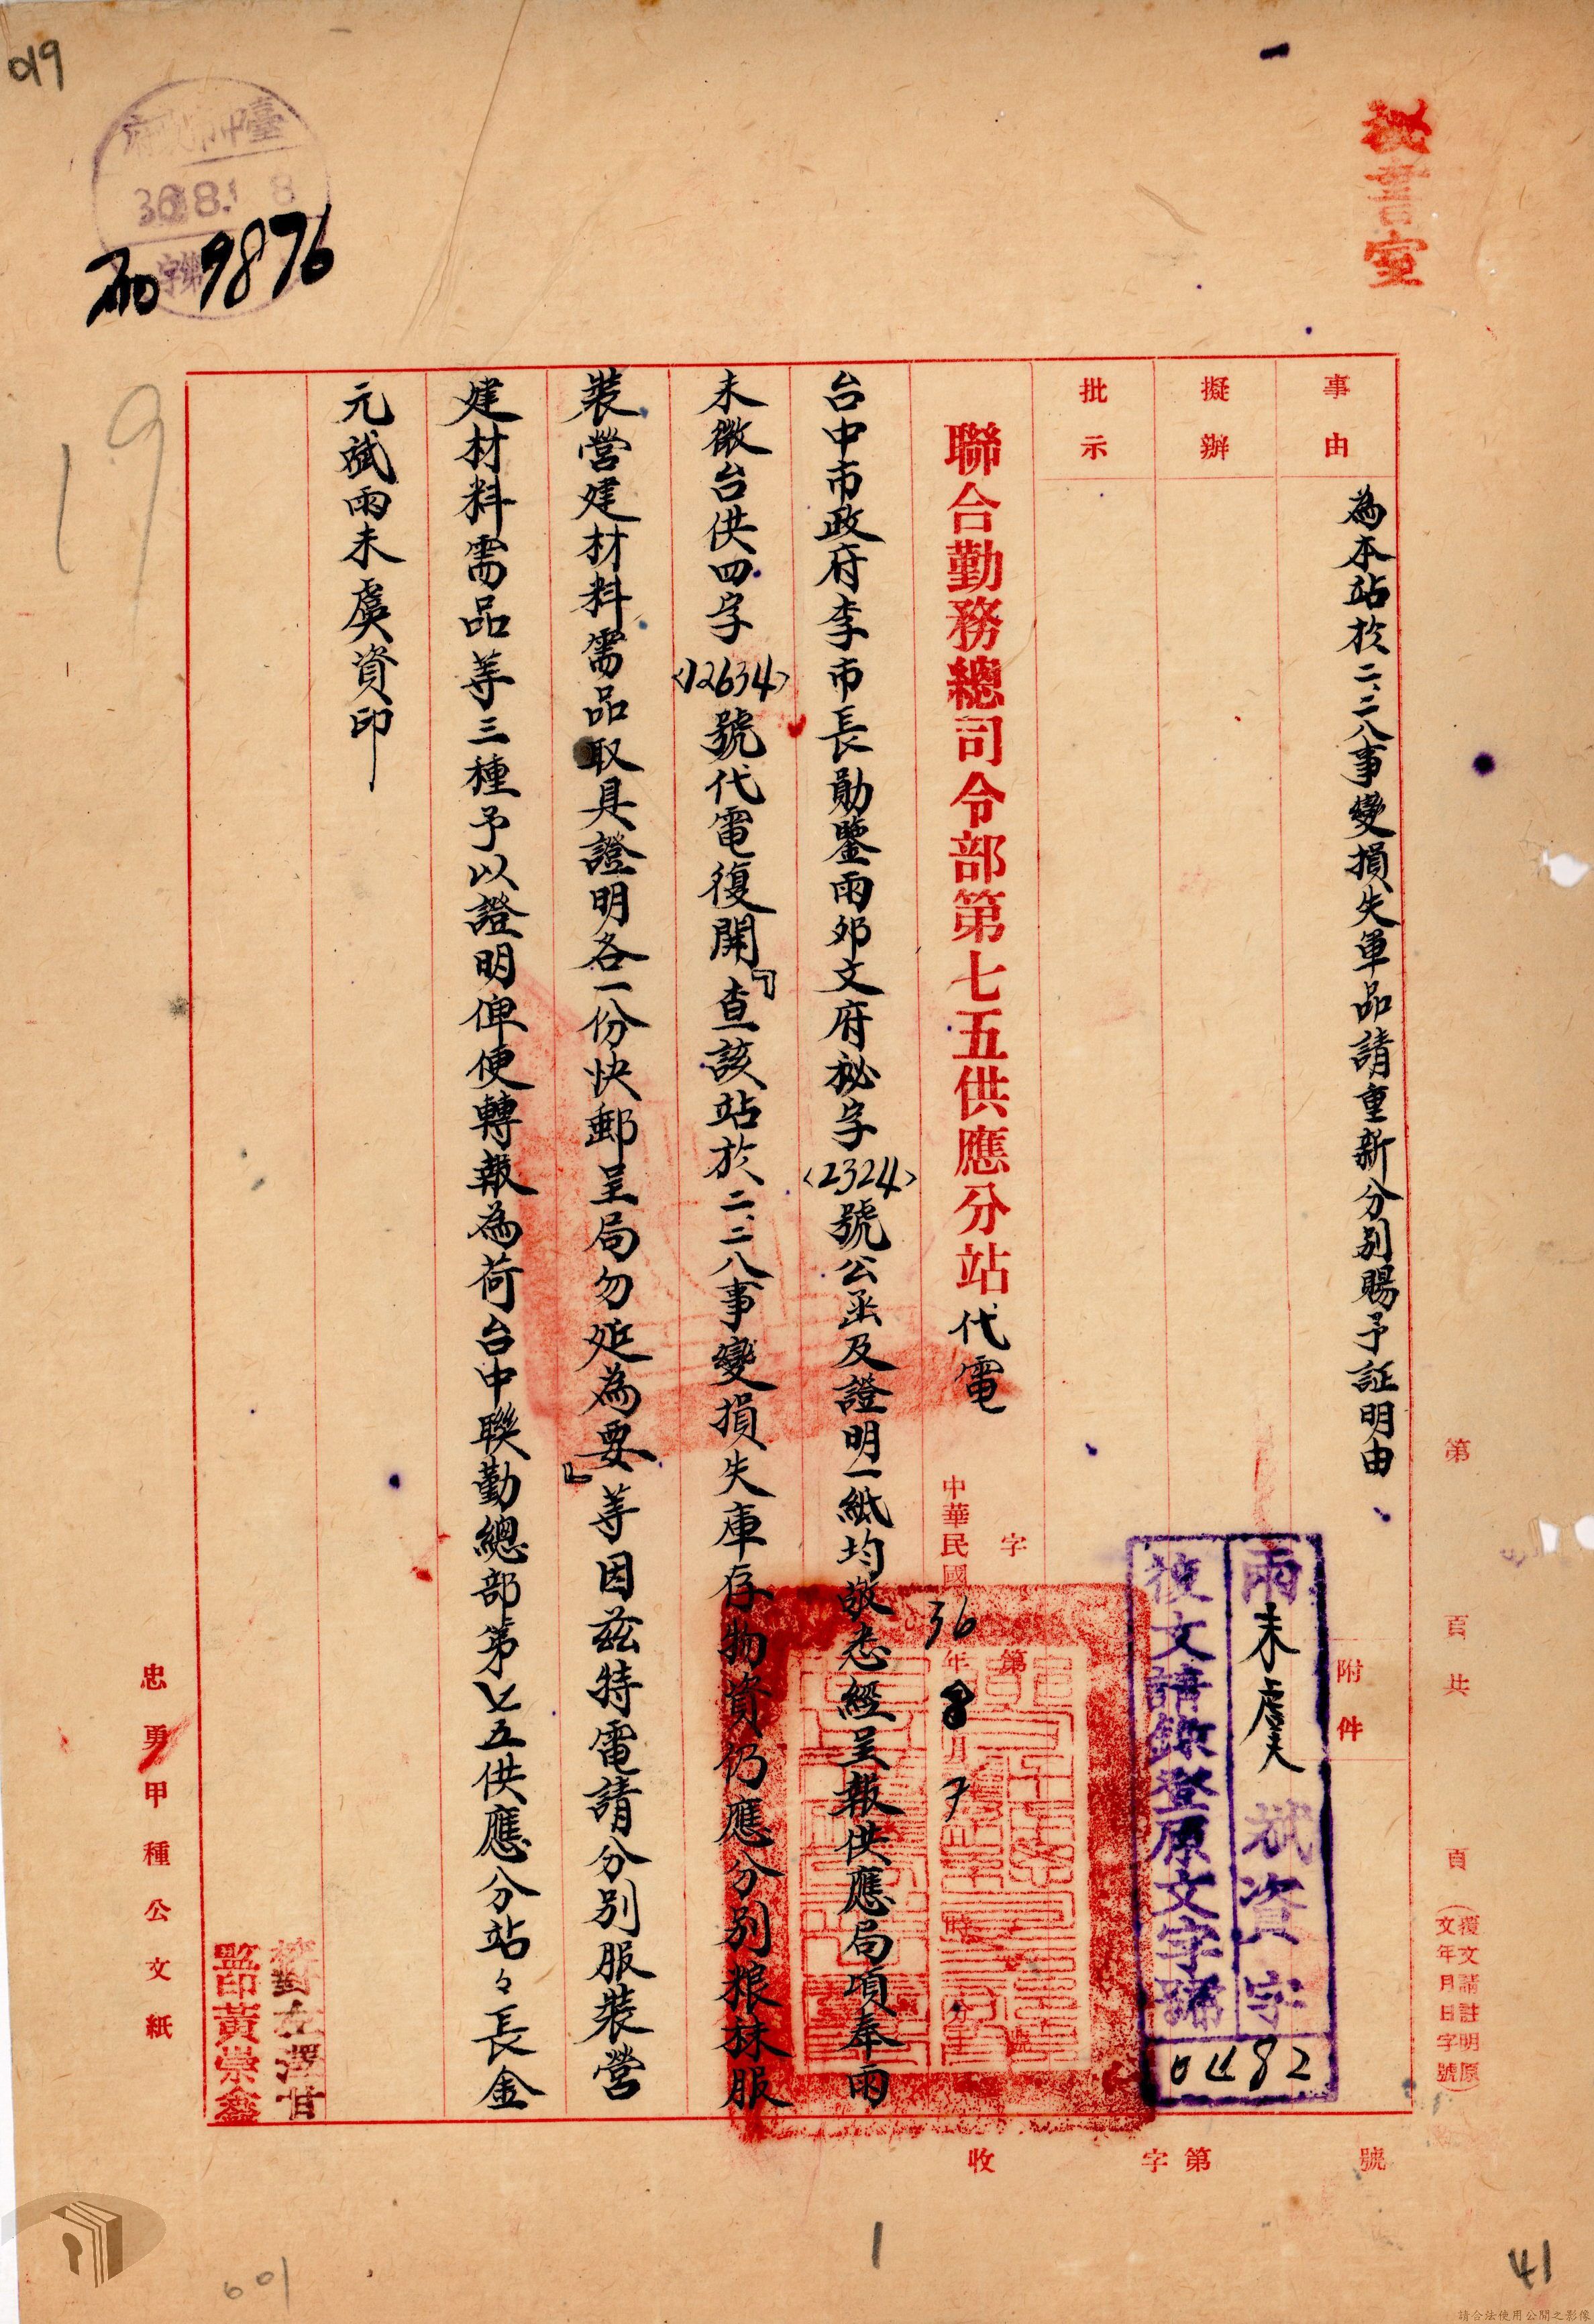 秘書室
019
臺中市政府
36.8. 8
9876
19
第 頁共 頁
(覆文請註明原文年月日字號)
事由
為本站於二、二八事變損失軍品請重新分別賜予証明由
附件
擬辦
批示
雨未虞 斌資字
復文請錄登原文字號
0482
聯合勤務總司令部第七五供應分站代電
字第 號
中華民國36年8月7日 時 分
台中市政府李市長勛鑒雨卯文府秘字<2324>號公函及證明一紙均敬悉經呈報供應局項奉雨
未微台供四字<12634>號代電復開『查該站於二、二八事變損失庫存物資仍應分別粮秣服
裝營建材料需品取具證明各一份快郵呈局勿延為要』等因茲特電請分別服裝營
建材料需品等三種予以證明俾便轉報為荷台中聯勤總部第七五供應分站々長金
元斌雨未虞資印
監印黃崇鑫
忠勇甲種公文紙
收 字第 號
601
1
41
請合法使用公開之影像